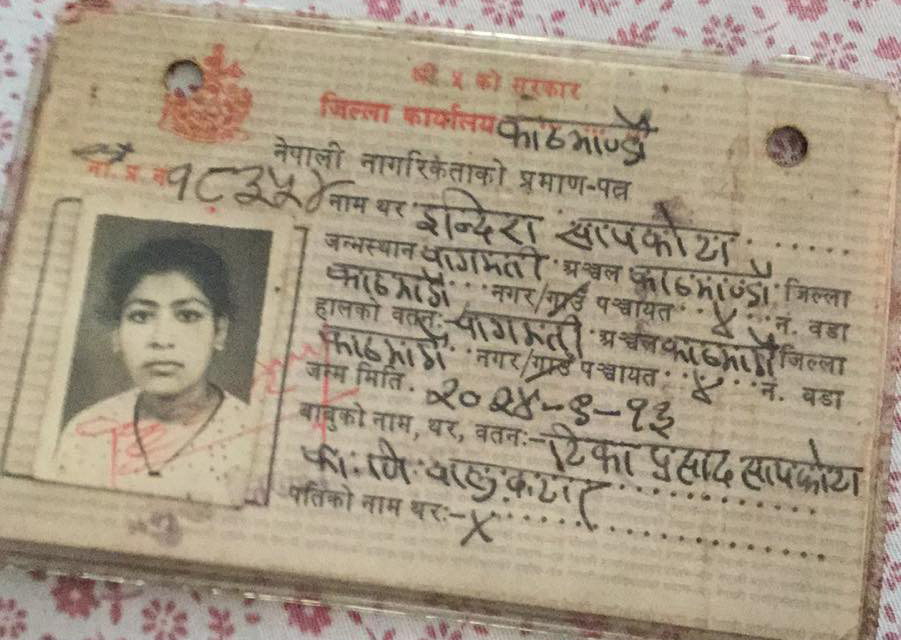 श्री ५ को सरकार
जिल्ला कार्यालय काठमाण्डौ
नेपाली नागरिकताको प्रमाण-पत्र
ना. प्र. नं १८३५४
नाम थर इन्दिरा सापकोटा
जन्मस्थान वागमती अञ्चल काठमाण्डौ जिल्ला
काठमाडौं नगर/गाउँ पञ्चायत ४ नं. वडा
हालको वतन:- वागमती अञ्चल काठमाडौं जिल्ला
काठमाडौं नगर/गाउँ पञ्चायत ४ नं. वडा
जन्म मिति. २०२४-९-१३
बाबुको नाम, थर, वतन:- टिका प्रसाद सापकोटा
का. जि. वालुवाटार
पतिको नाम थर:- X